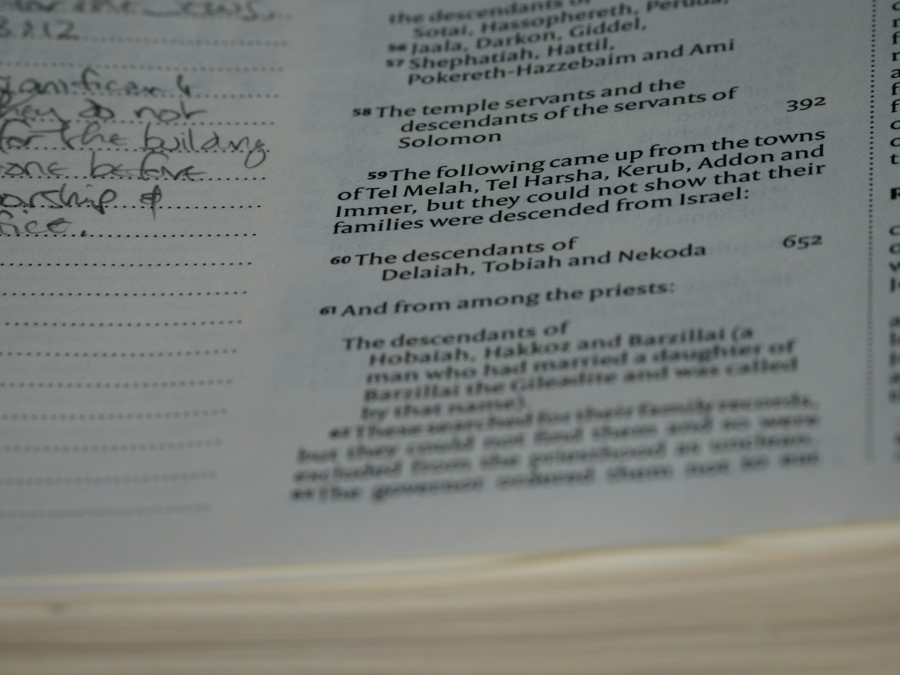 for the Jews.
3:2,12
significant
they do not
for the building
done before
worship &
the descendants of
Sotai, Hassophereth, Peruda,
56 Jaala, Darkon, Giddel,
57 Shephatiah, Hattil,
Pokereth-Hazzebaim and Ami
58 The temple servants and the
descendants of the servants of
Solomon 392
59 The following came up from the towns
of Tel Melah, Tel Harsha, Kerub, Addon and
Immer, but they could not show that their
families were descended from Israel:
60 The descendants of
Delaiah, Tobiah and Nekoda 652
61 And from among the priests:
The descendants of
Hobaiah, Hakkoz and Barzillai (a
man who had married a daughter of
Barzillai the Gileadite and was called
by that name).
62 These searched for their family records,
but they could not find them and so were
excluded from the priesthood as unclean.
63 The governor ordered them not to eat